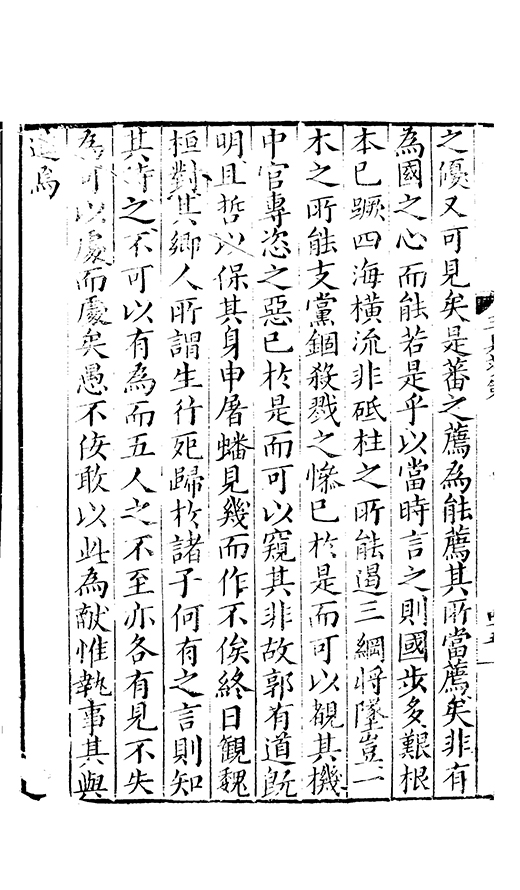 之優又可見矣是蕃之薦為能薦其所當薦矣非有
為國之心而能若是乎以當時言之則國步多艱根
本已蹶四海橫流非砥柱之所能遏三綱將墜豈一
木之所能支黨錮殺戮之慘已於是而可以覩其機
中官專恣之惡已於是而可以窺其非故郭有道旣
明且哲以保其身申屠蟠見幾而作不俟終日觀魏
桓對其鄉人所謂生行死歸於諸子何有之言則知
其時之不可以有為而五人之不至亦各有見不失
為可以處而處矣愚不佞敢以此為献惟執事其與
進焉